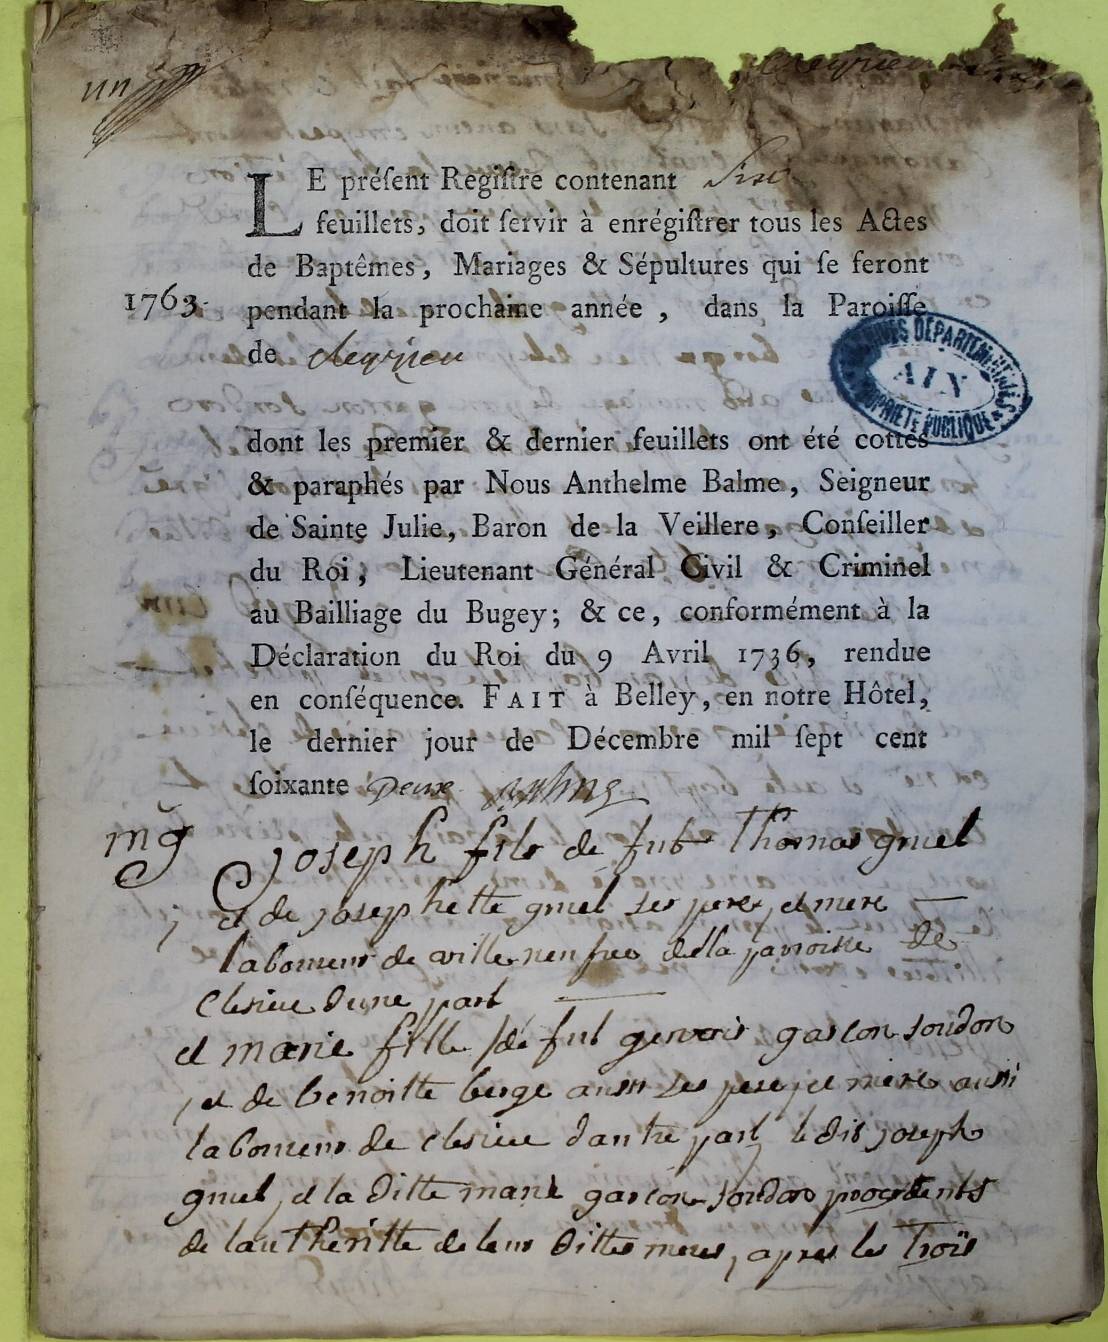 un
LE préſent Regiſtre contenant Six
feuillets, doit ſervir à enrégiſtrer tous les Actes
de Baptêmes, Mariages & Sépultures qui ſe feront
1763. pendant la prochaine année, dans la Paroiſſe
de cleyrieu
ARCHIVES DÉPARTEMENTALES
AIN
PROPRIÉTÉ PUBLIQUE
dont les premier & dernier feuillets ont été cottés
& paraphés par Nous Anthelme Balme, Seigneur
de Sainte Julie, Baron de la Veillere, Conſeiller
du Roi, Lieutenant Général Civil & Criminel
au Bailliage du Bugey; & ce, conformément à la
Déclaration du Roi du 9 Avril 1736, rendue
en conſéquence. FAIT à Belley, en notre Hôtel,
le dernier jour de Décembre mil ſept cent
ſoixante Deux
mg Joseph fils de fut Thomas gruel
et de josephette gruel ses pere, et mere
laboureur de de la paroisse de
clesieu dune part
et marie fille de fut gervais garcon soudon
, et de benoitte berge aussi ses pere, et mere aussi
laboureur de clesieu dautre part, le dit joseph
gruel, et la ditte marie garcon soudon procedents
de lautheritte de leur dittes meres, apres les Trois